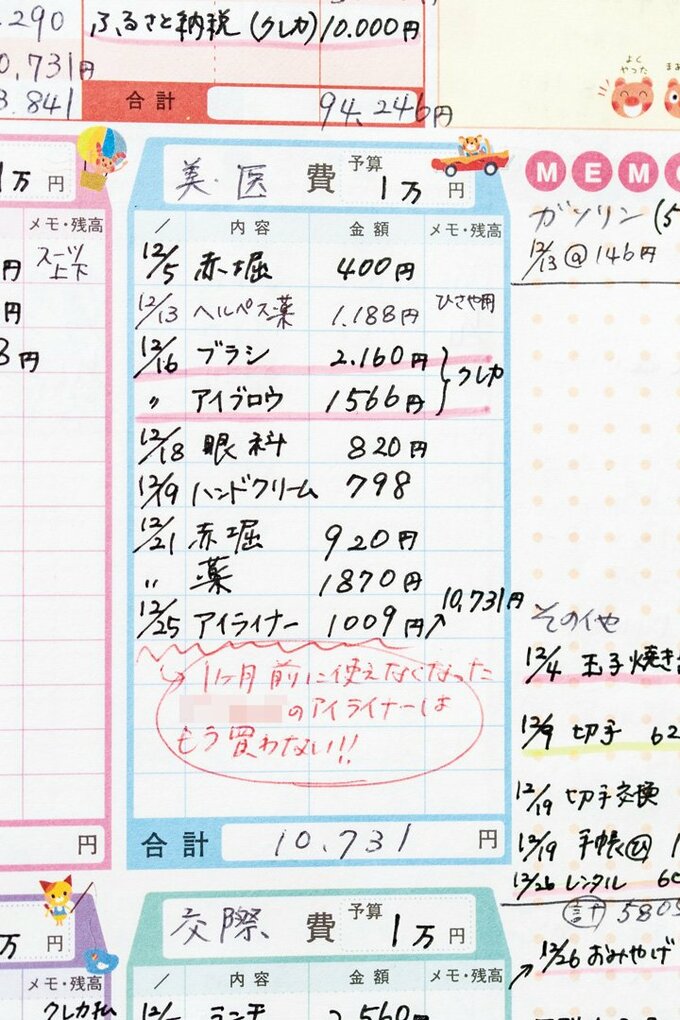 .290
ふるさと納税 (クレカ) 10.000円
0.731円
3.841
合計 94,246円
よくやった
1万円
メモ・残高
スーツ上下
円
円
8円
円
美・医費 予算 1万円
/ 内容 金額 メモ・残高
12/5 赤堀 400円
12/13 ヘルペス薬 1.188円 ひさや用
12/16 ブラシ 2.160円
〃 アイブロウ 1566円 クレカ
12/18 眼科 820円
12/19 ハンドクリーム 798
12/21 赤堀 920円
〃 薬 1870円
12/25 アイライナー 1009円 10,731円
1ヶ月前に使えなくなった
のアイライナーは
もう買わない!!
合計 10.731 円
MEM
ガソリン (5
12/13 @146円
その他
12/4 玉子焼き
12/9 切手 62
12/19 切手交換
12/19 手帳 1
12/26 レンタル 60
計 5805
12/26 おみやげ
万円
メモ・残高
クレカ払
交際費 予算 1万円
/ 内容 金額 メモ・残高
ランチ 2.560円